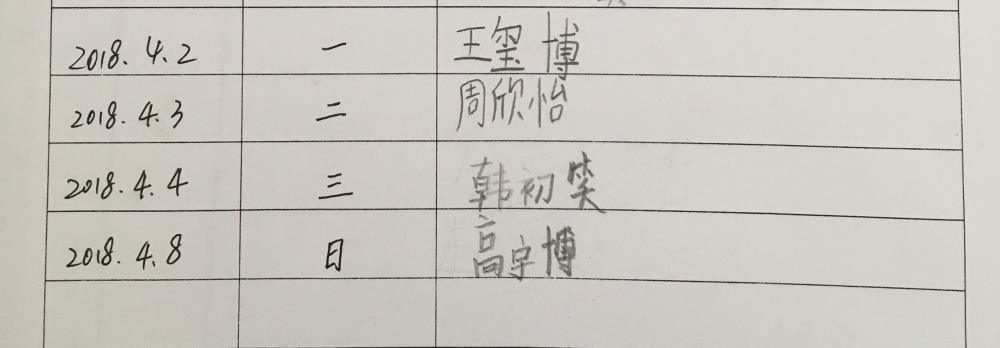 2018.4.2 一 王玺博
2018.4.3 二 周欣怡
2018.4.4 三 韩初笑
2018.4.8 日 高宇博